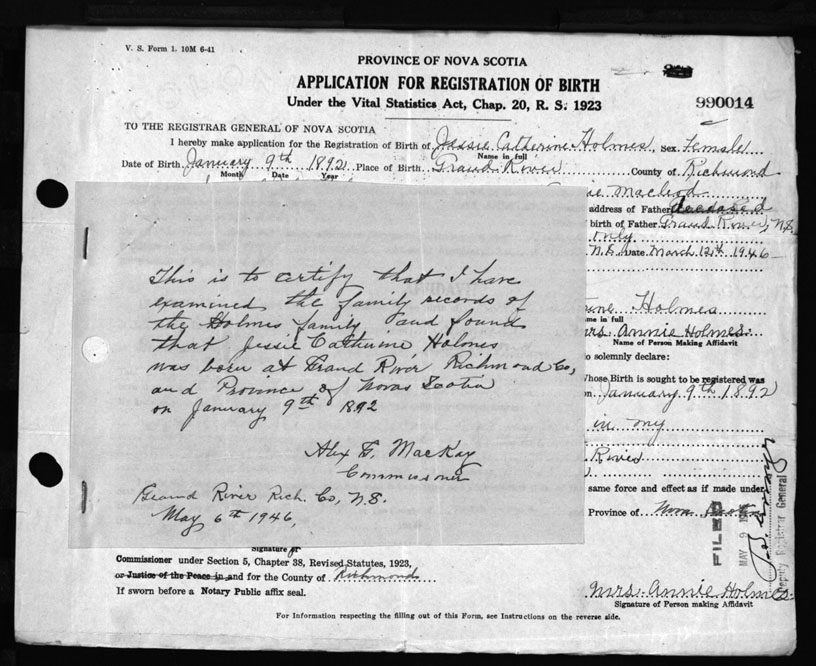 V. S. Form 1. 10M 6-41
PROVINCE OF NOVA SCOTIA
APPLICATION FOR REGISTRATION OF BIRTH
Under the Vital Statistics Act, Chap. 20, R. S. 1923
990014
TO THE REGISTRAR GENERAL OF NOVA SCOTIA
I hereby make application for the Registration of Birth of Jessie Catherine Holmes Sex Female
Name in full
Date of Birth January 9th 1892 Place of Birth Grand River County of Richmond
Month Date Year
Macleod
address of Father deceased
birth of Father Grand River, N.S.
only
N.S. Date March 12th 1946
Holmes
me in full
Mrs. Annie Holmes
Name of Person Making Affidavit
o solemnly declare:
Whose Birth is sought to be registered was
n January 9th 1892
in my
River
same force and effect as if made under
Province of Nova Scotia
This is to certify that I have
examined the family records of
the Holmes family and found
that Jessie Catherine Holmes
was born at Grand River Richmond Co,
and Province of Novas Scotia
on January 9th 1892
Alex F. MacKay
Commissioner
Grand River Rich. Co, N.S.
May 6th 1946,
FILED
MAY 9
Deputy Registrar General
Signature of
Commissioner under Section 5, Chapter 38, Revised Statutes, 1923,
or Justice of the Peace in and for the County of Richmond
If sworn before a Notary Public affix seal.
Mrs. Annie Holmes.
Signature of Person making Affidavit
For Information respecting the filling out of this Form, see Instructions on the reverse side.